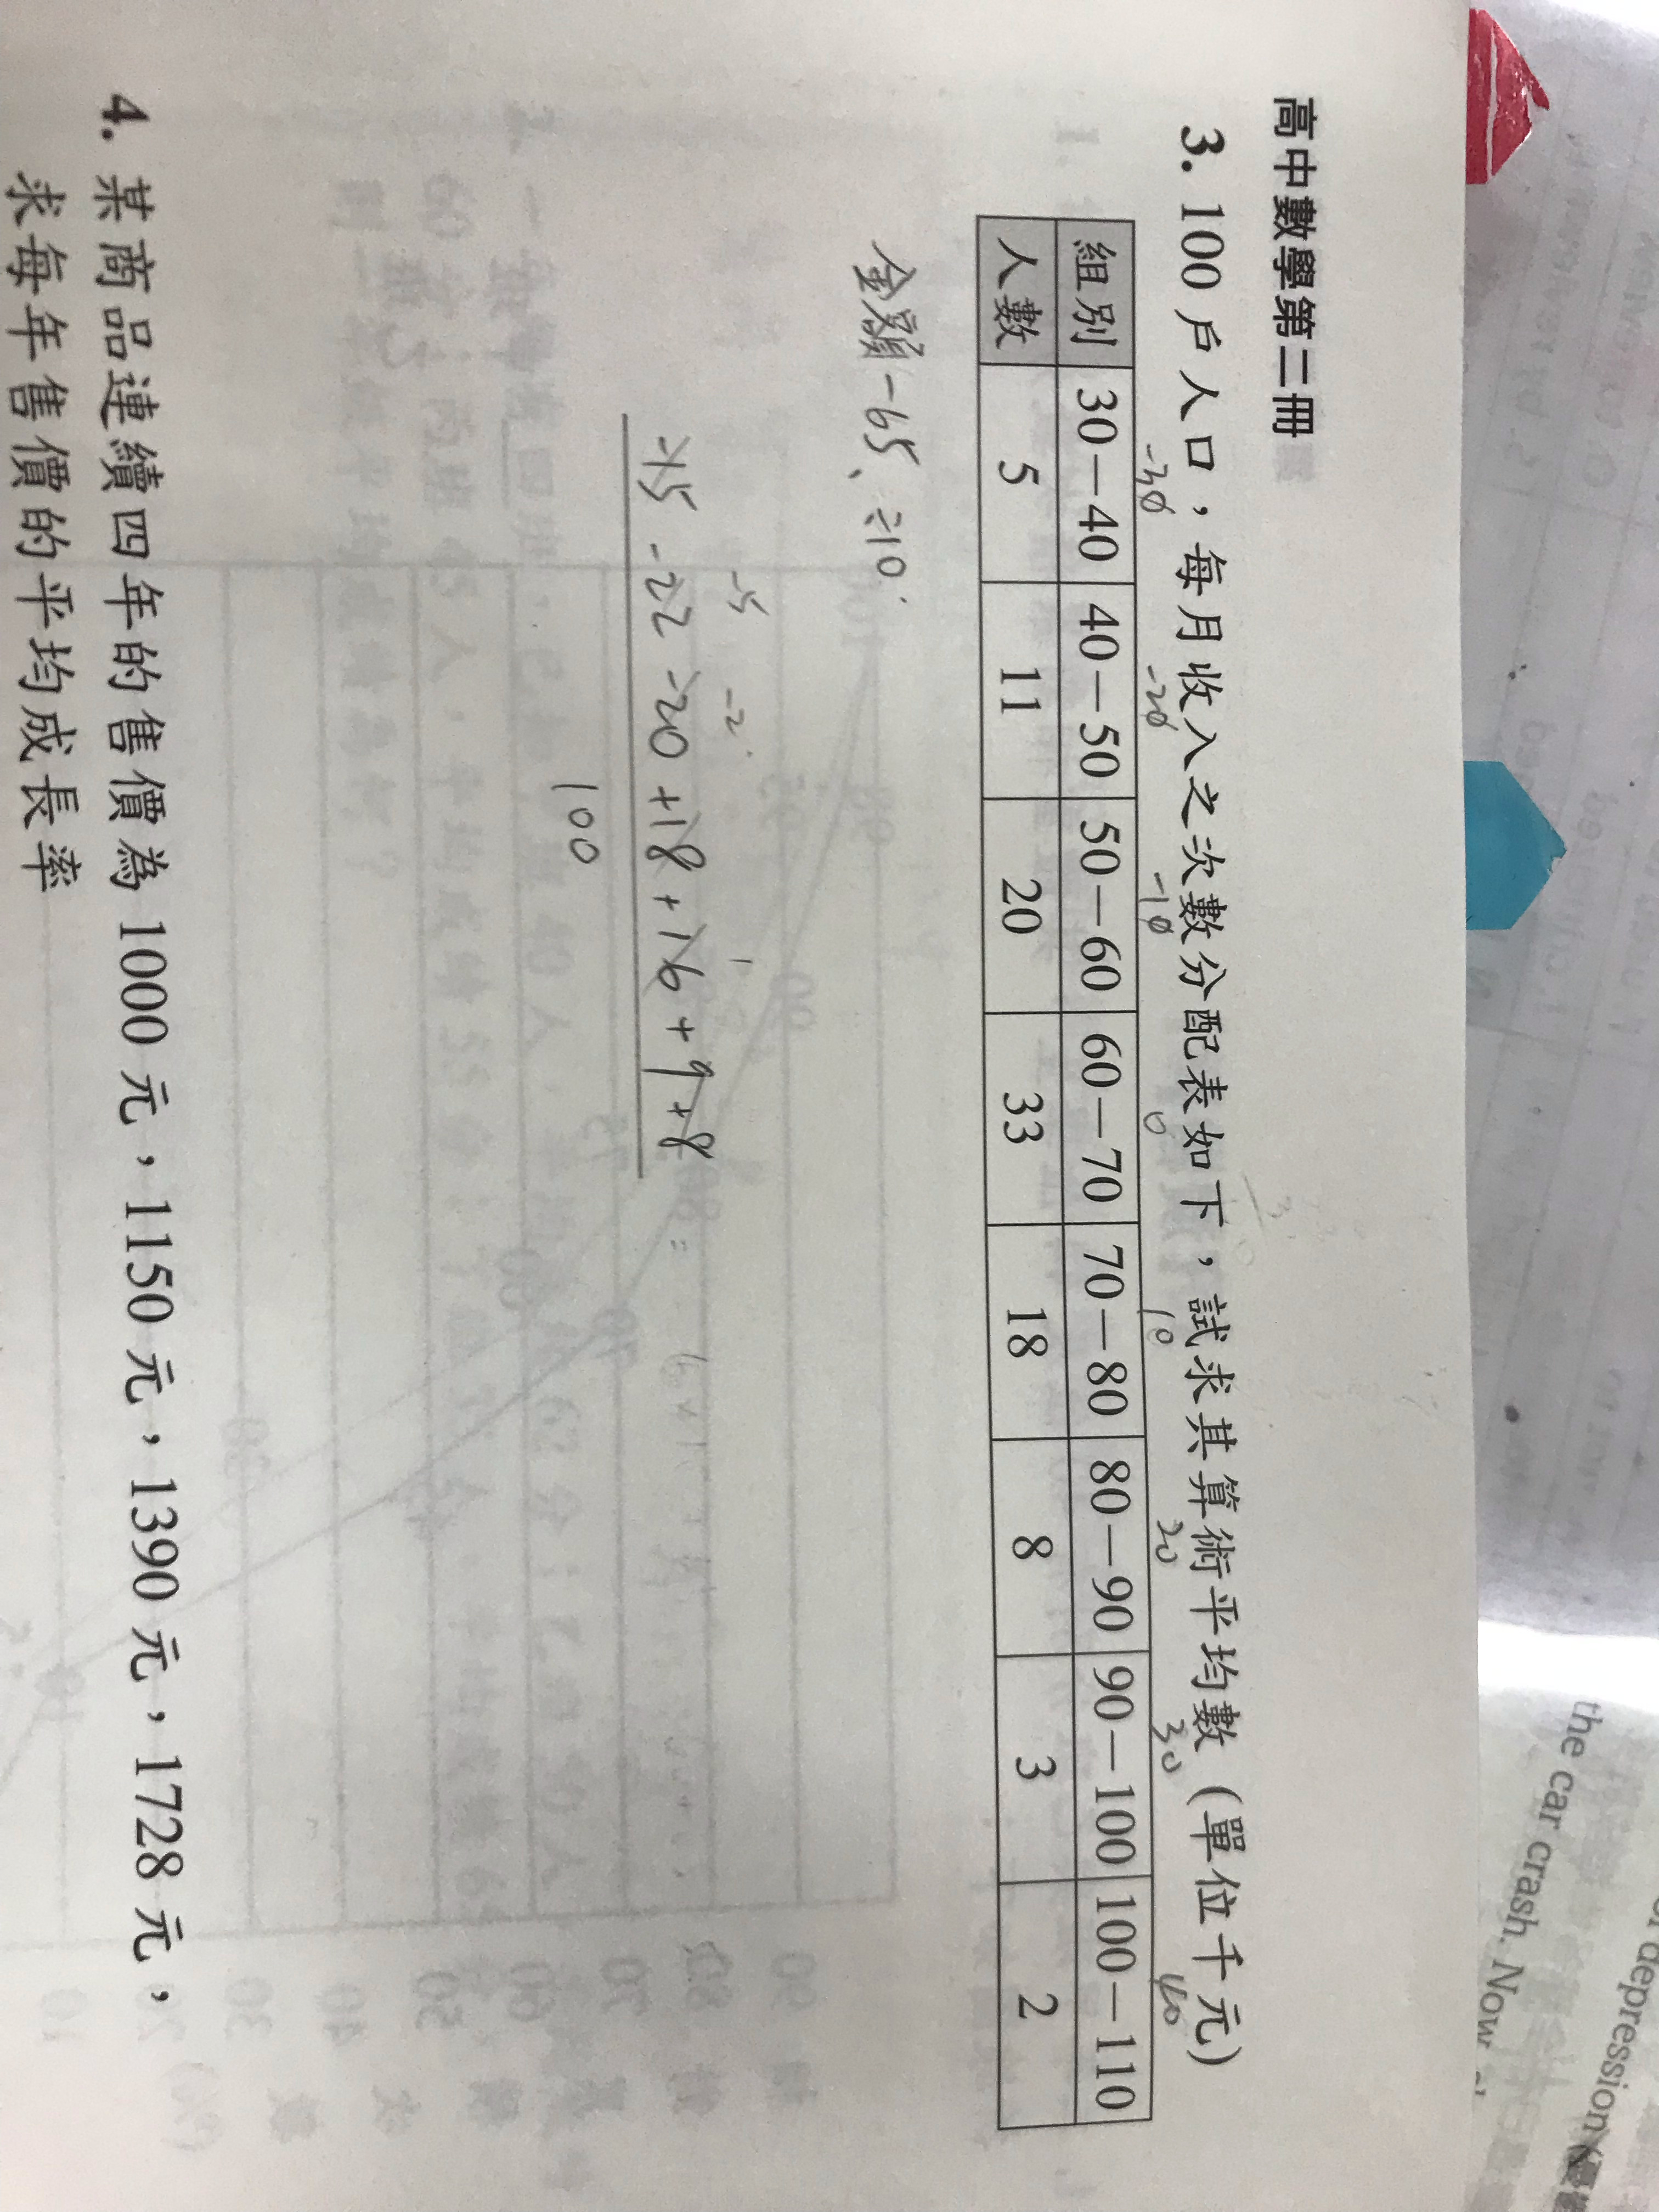 高中數學第二冊
3. 100 戶人口，每月收入之次數分配表如下，試求其算術平均數 (單位千元)
-30 -20 -10 0 10 20 30 40
組別 30－40 40－50 50－60 60－70 70－80 80－90 90－100 100－110
人數 5 11 20 33 18 8 3 2
金額-65、÷10
-5 -2 1
-15 -22 -20 +18 +16 +9 +8
100
4. 某商品連續四年的售價為 1000 元，1150 元，1390 元，1728 元，
求每年售價的平均成長率
the car crash. Now
depression